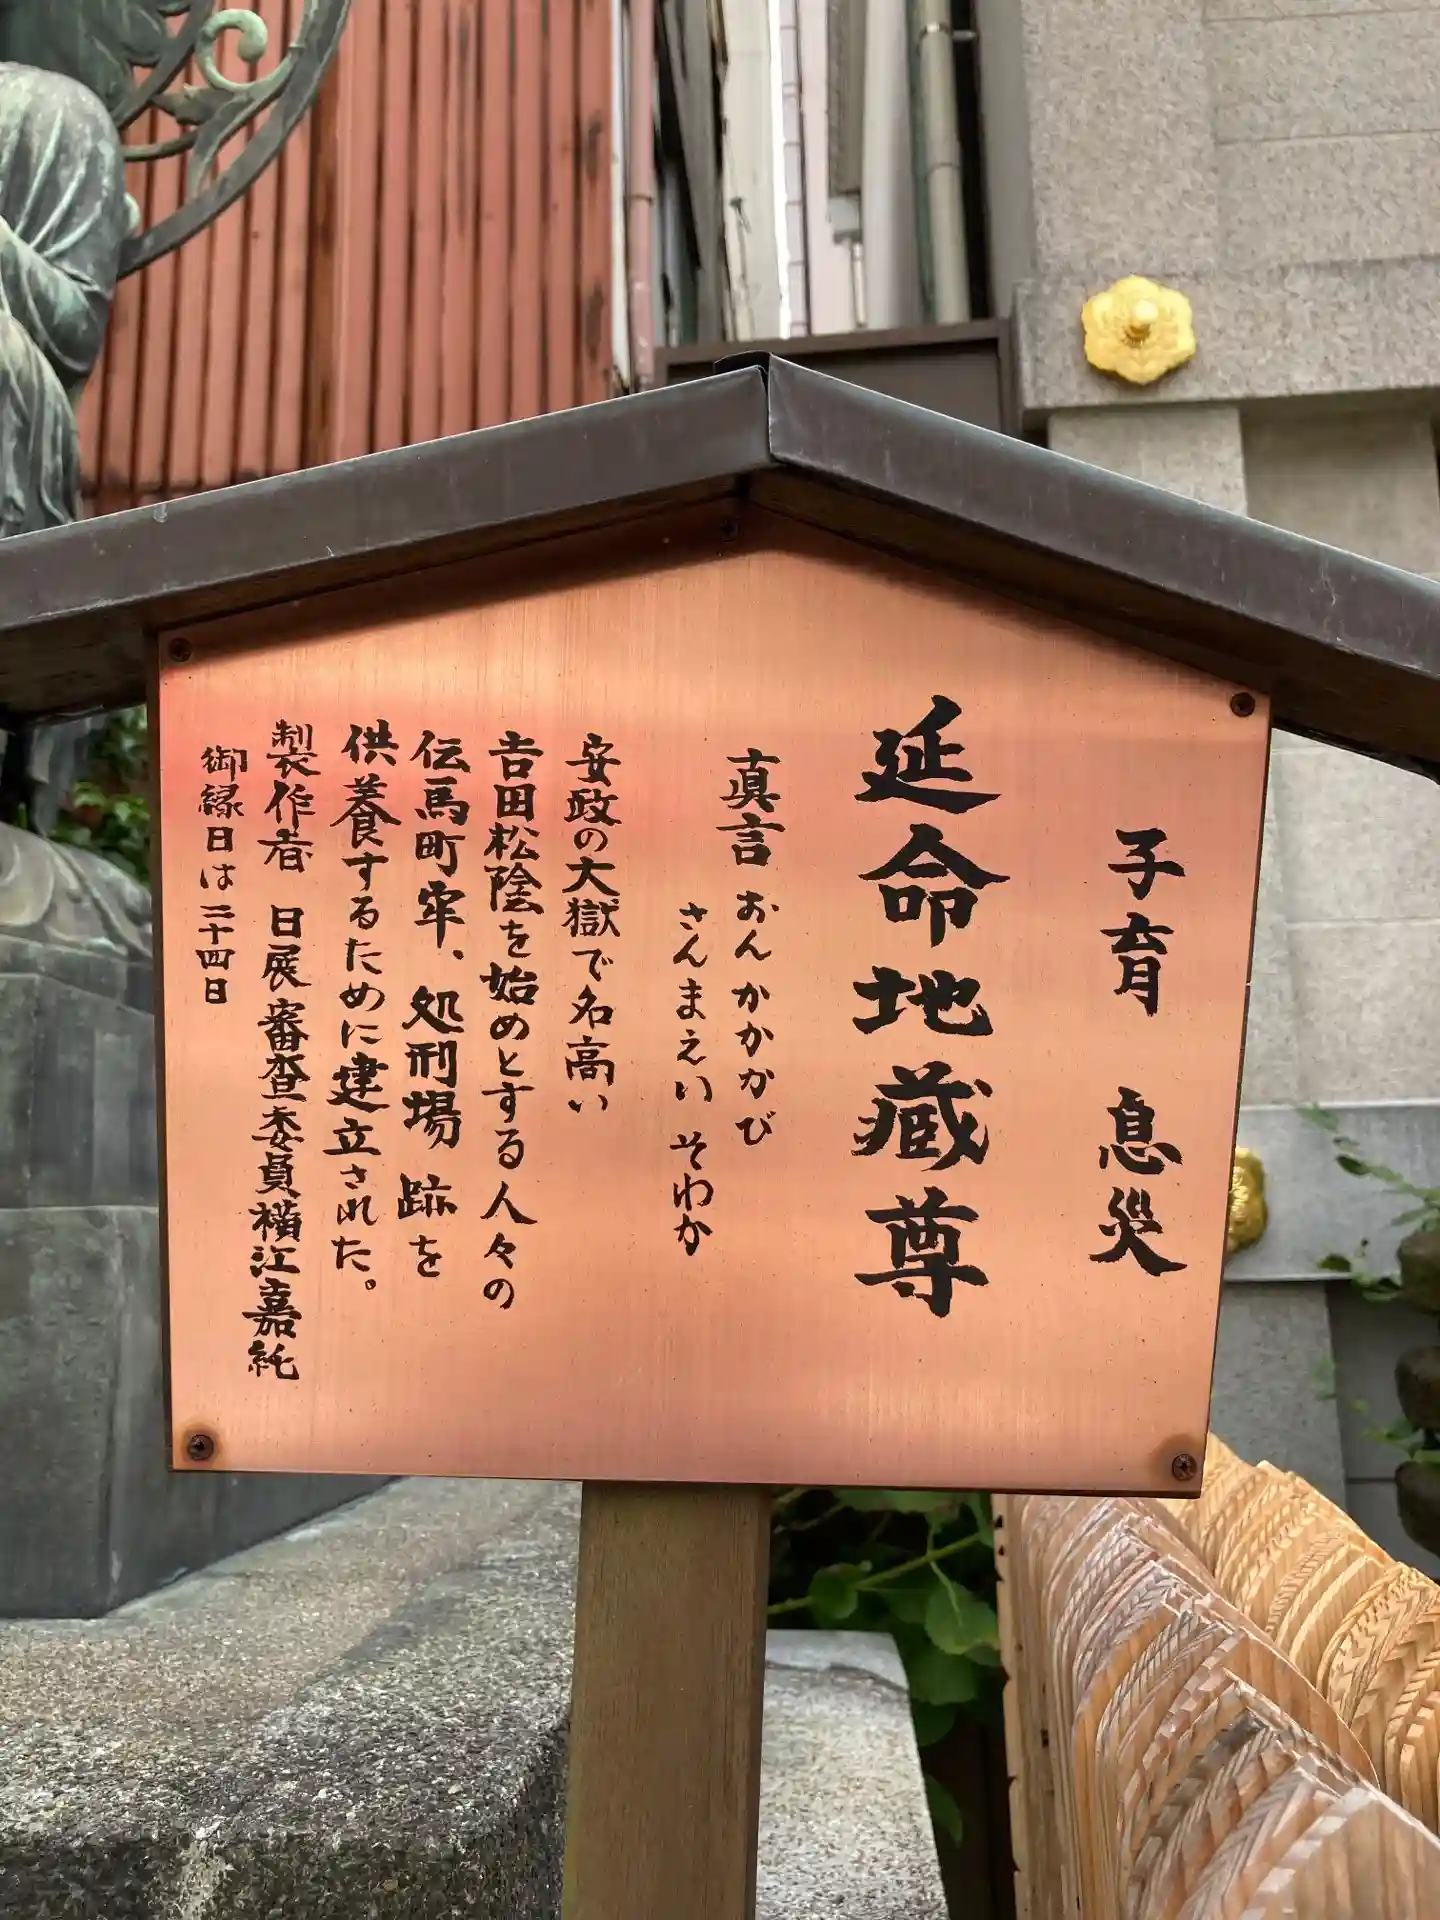 子育 息災
延命地蔵尊
真言 おん かかかび
さんまえい そわか
安政の大獄で名高い
吉田松陰を始めとする人々の
伝馬町牢、処刑場 跡を
供養するために建立された。
製作者 日展審査委員横江嘉純
御縁日は二十四日